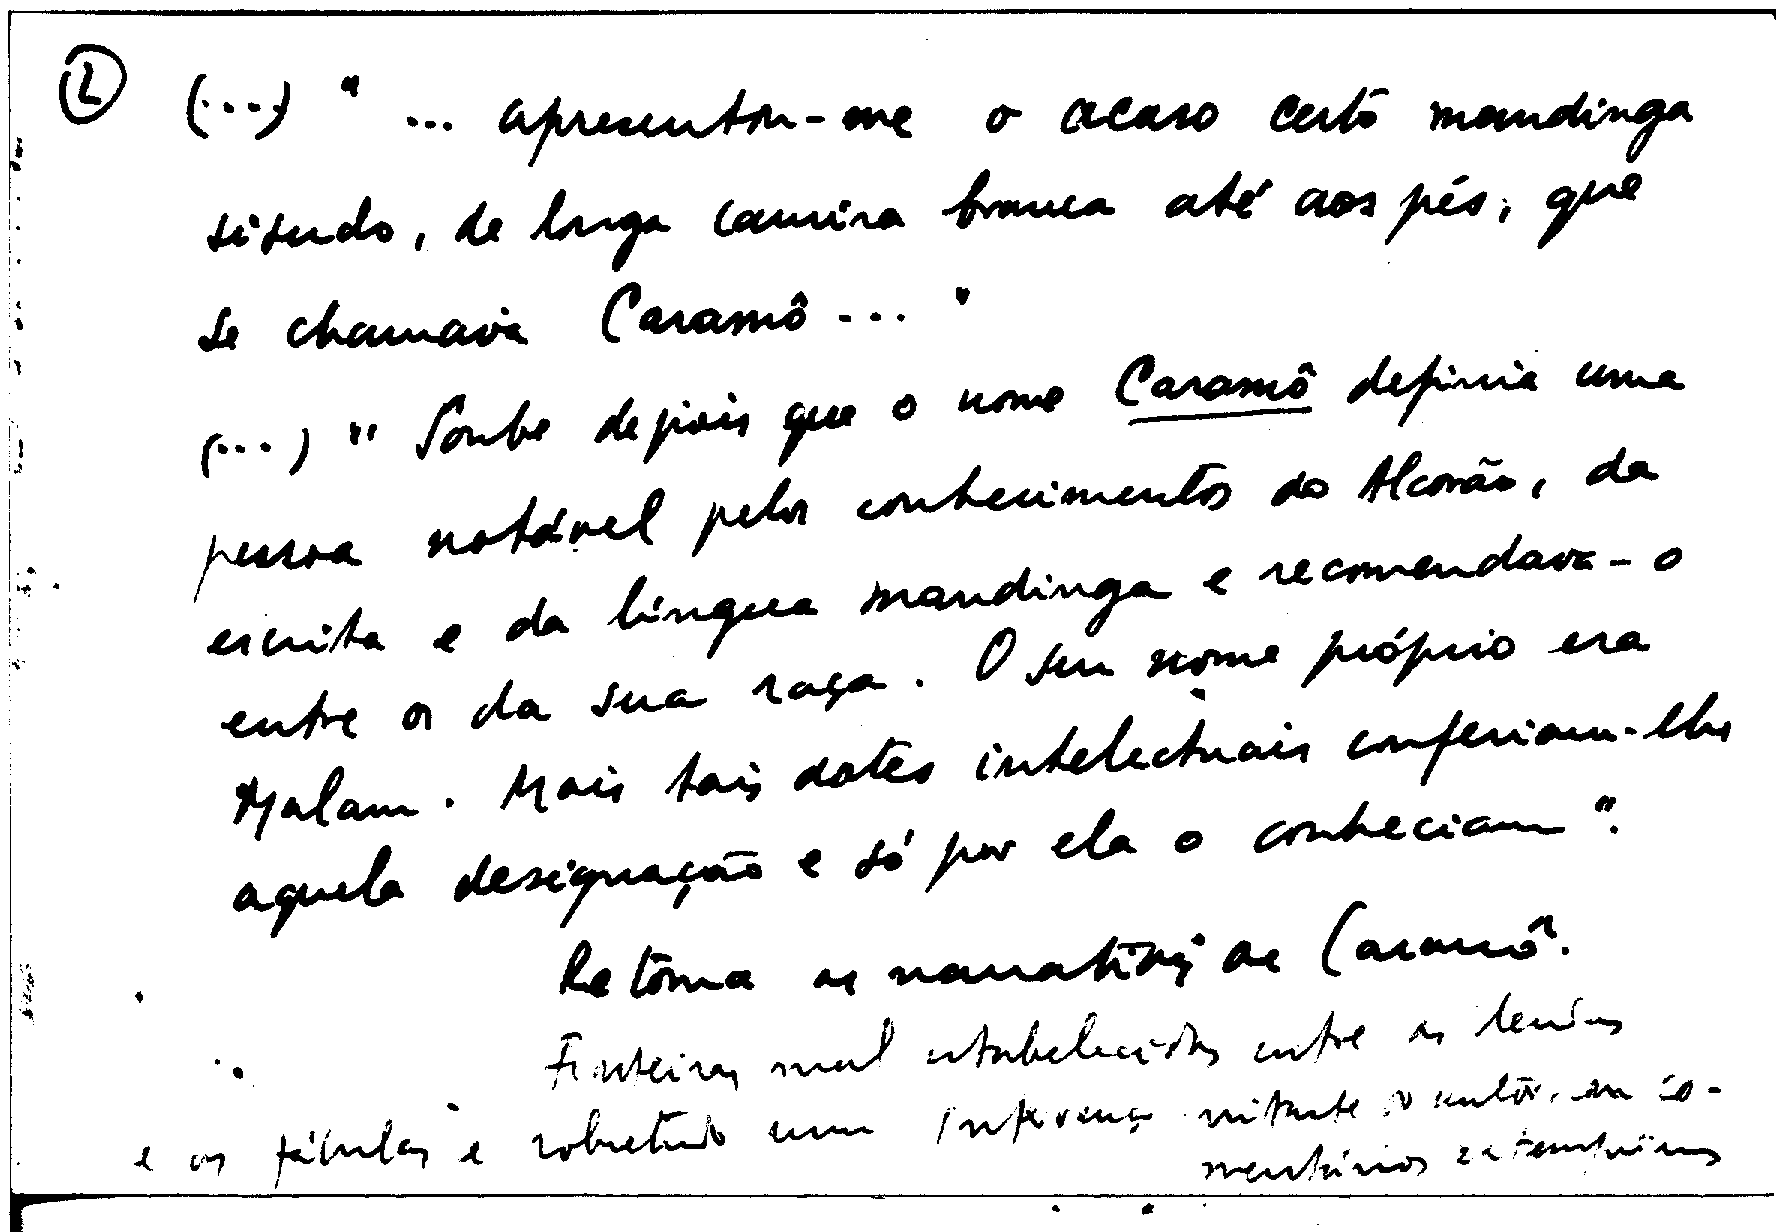 2 (...) "... apresentou-me o acaso certo mandinga
sisudo, de longa camisa branca até aos pés, que
se chamava Caramô ..."
(...) "Soube depois que o nome Caramô definia uma
pessoa notável pelos conhecimentos do Alcorão, da
escrita e da língua mandinga e recomendava-o
entre os da sua raça. O seu nome próprio era
Malam. Mais tais dotes intelectuais conferiam-lhe
aquela designação e só por ela o conheciam".
Retoma as narrativas de Caramô.
Fronteiras mal estabelecidas entre as lendas
e as fábulas e sobretudo uma presença irritante do autor, em co-
mentários extemporâneos